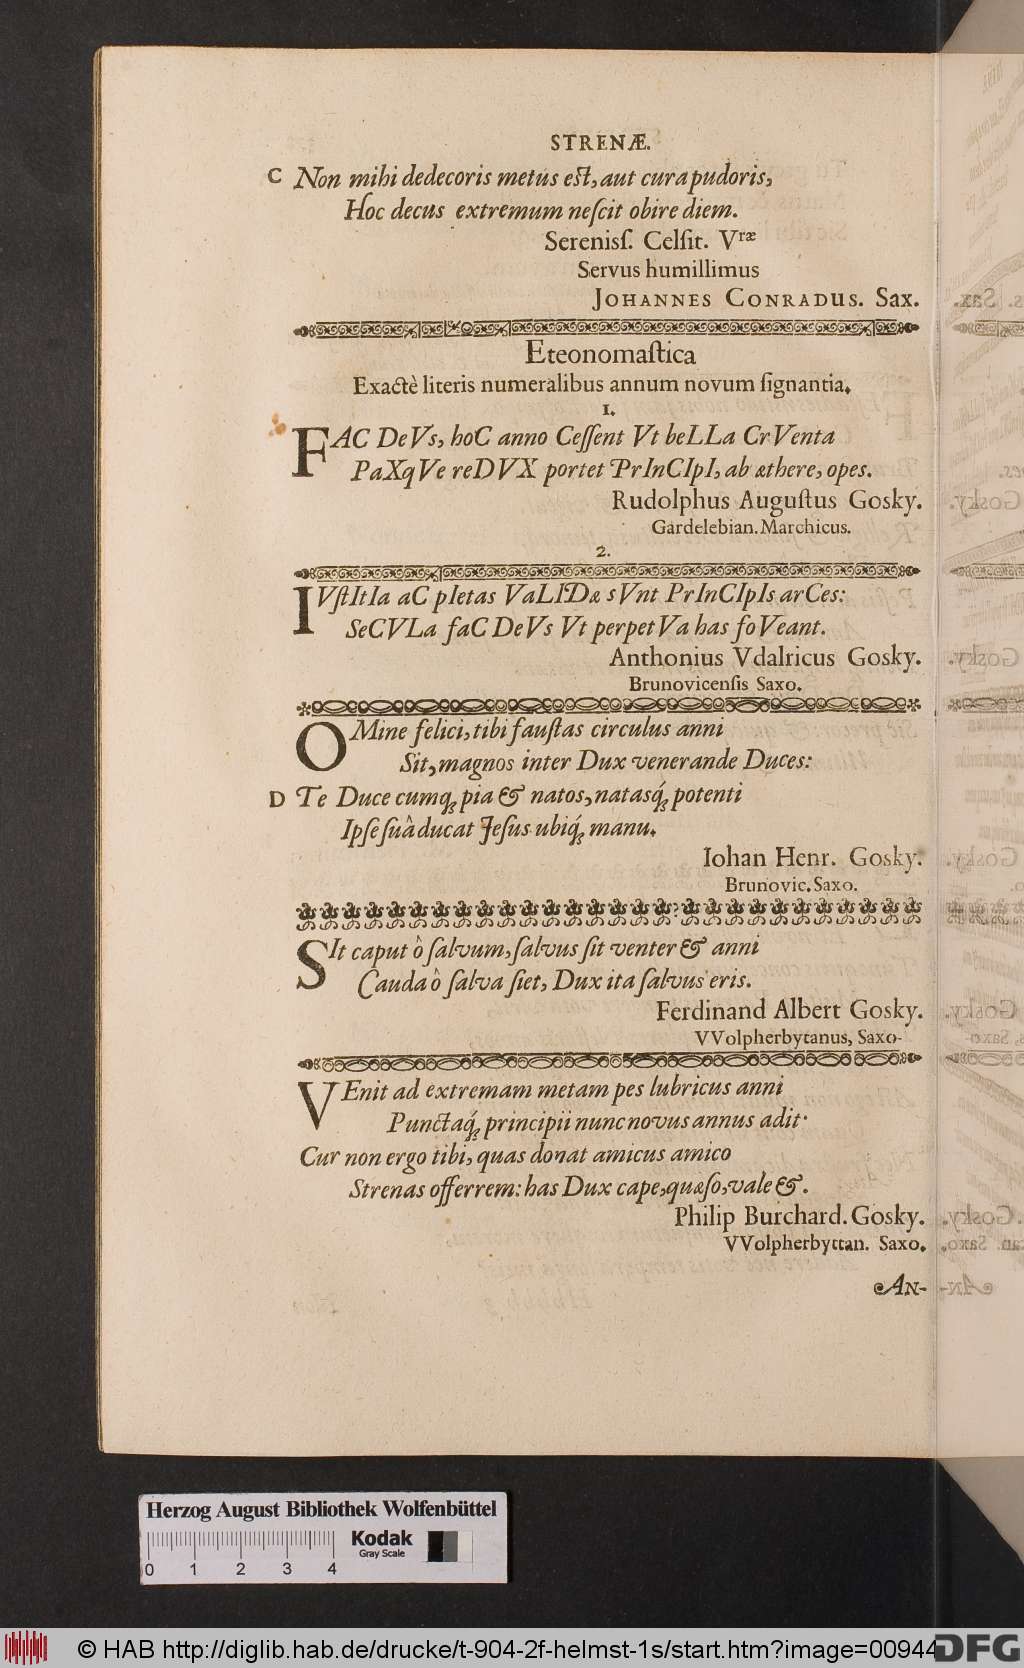 STRENÆ.
C Non mihi dedecoris metus est, aut cura pudoris,
Hoc decus extremum neſcit obire diem.
Sereniſſ. Celſit. Vræ
Servus humillimus
JOHANNES CONRADUS. Sax.
Eteonomaſtica
Exactè literis numeralibus annum novum ſignantia.
1.
FAC DeVs, hoC anno Ceſſent Vt beLLa CrVenta
PaXqVe reDVX portet PrInCIpI, ab æthere, opes.
Rudolphus Auguſtus Gosky.
Gardelebian. Marchicus.
2.
IVſtItIa aC pIetas VaLIDæ sVnt PrInCIpIs arCes:
SeCVLa faC DeVs Vt perpetVa has foVeant.
Anthonius Vdalricus Gosky.
Brunovicenſis Saxo.
OMine felici, tibi fauſtas circulus anni
Sit, magnos inter Dux venerande Duces:
D Te Duce cumq; pia & natos, natasq́; potenti
Ipſe ſuâ ducat Jeſus ubiq́; manu.
Iohan Henr. Gosky.
Brunovic. Saxo.
SIt caput ô ſalvum, ſalvus ſit venter & anni
Cauda ô ſalva ſiet, Dux ita ſalvus eris.
Ferdinand Albert Gosky.
VVolpherbytanus, Saxo-
VEnit ad extremam metam pes lubricus anni
Punctaq́; principii nunc novus annus adit·
Cur non ergo tibi, quas donat amicus amico
Strenas offerrem: has Dux cape, quæſo, vale &.
Philip Burchard. Gosky.
VVolpherbyttan. Saxo.
AN-
Herzog August Bibliothek Wolfenbüttel
Kodak
Gray Scale
0 1 2 3 4
© HAB http://diglib.hab.de/drucke/t-904-2f-helmst-1s/start.htm?image=00944
DFG